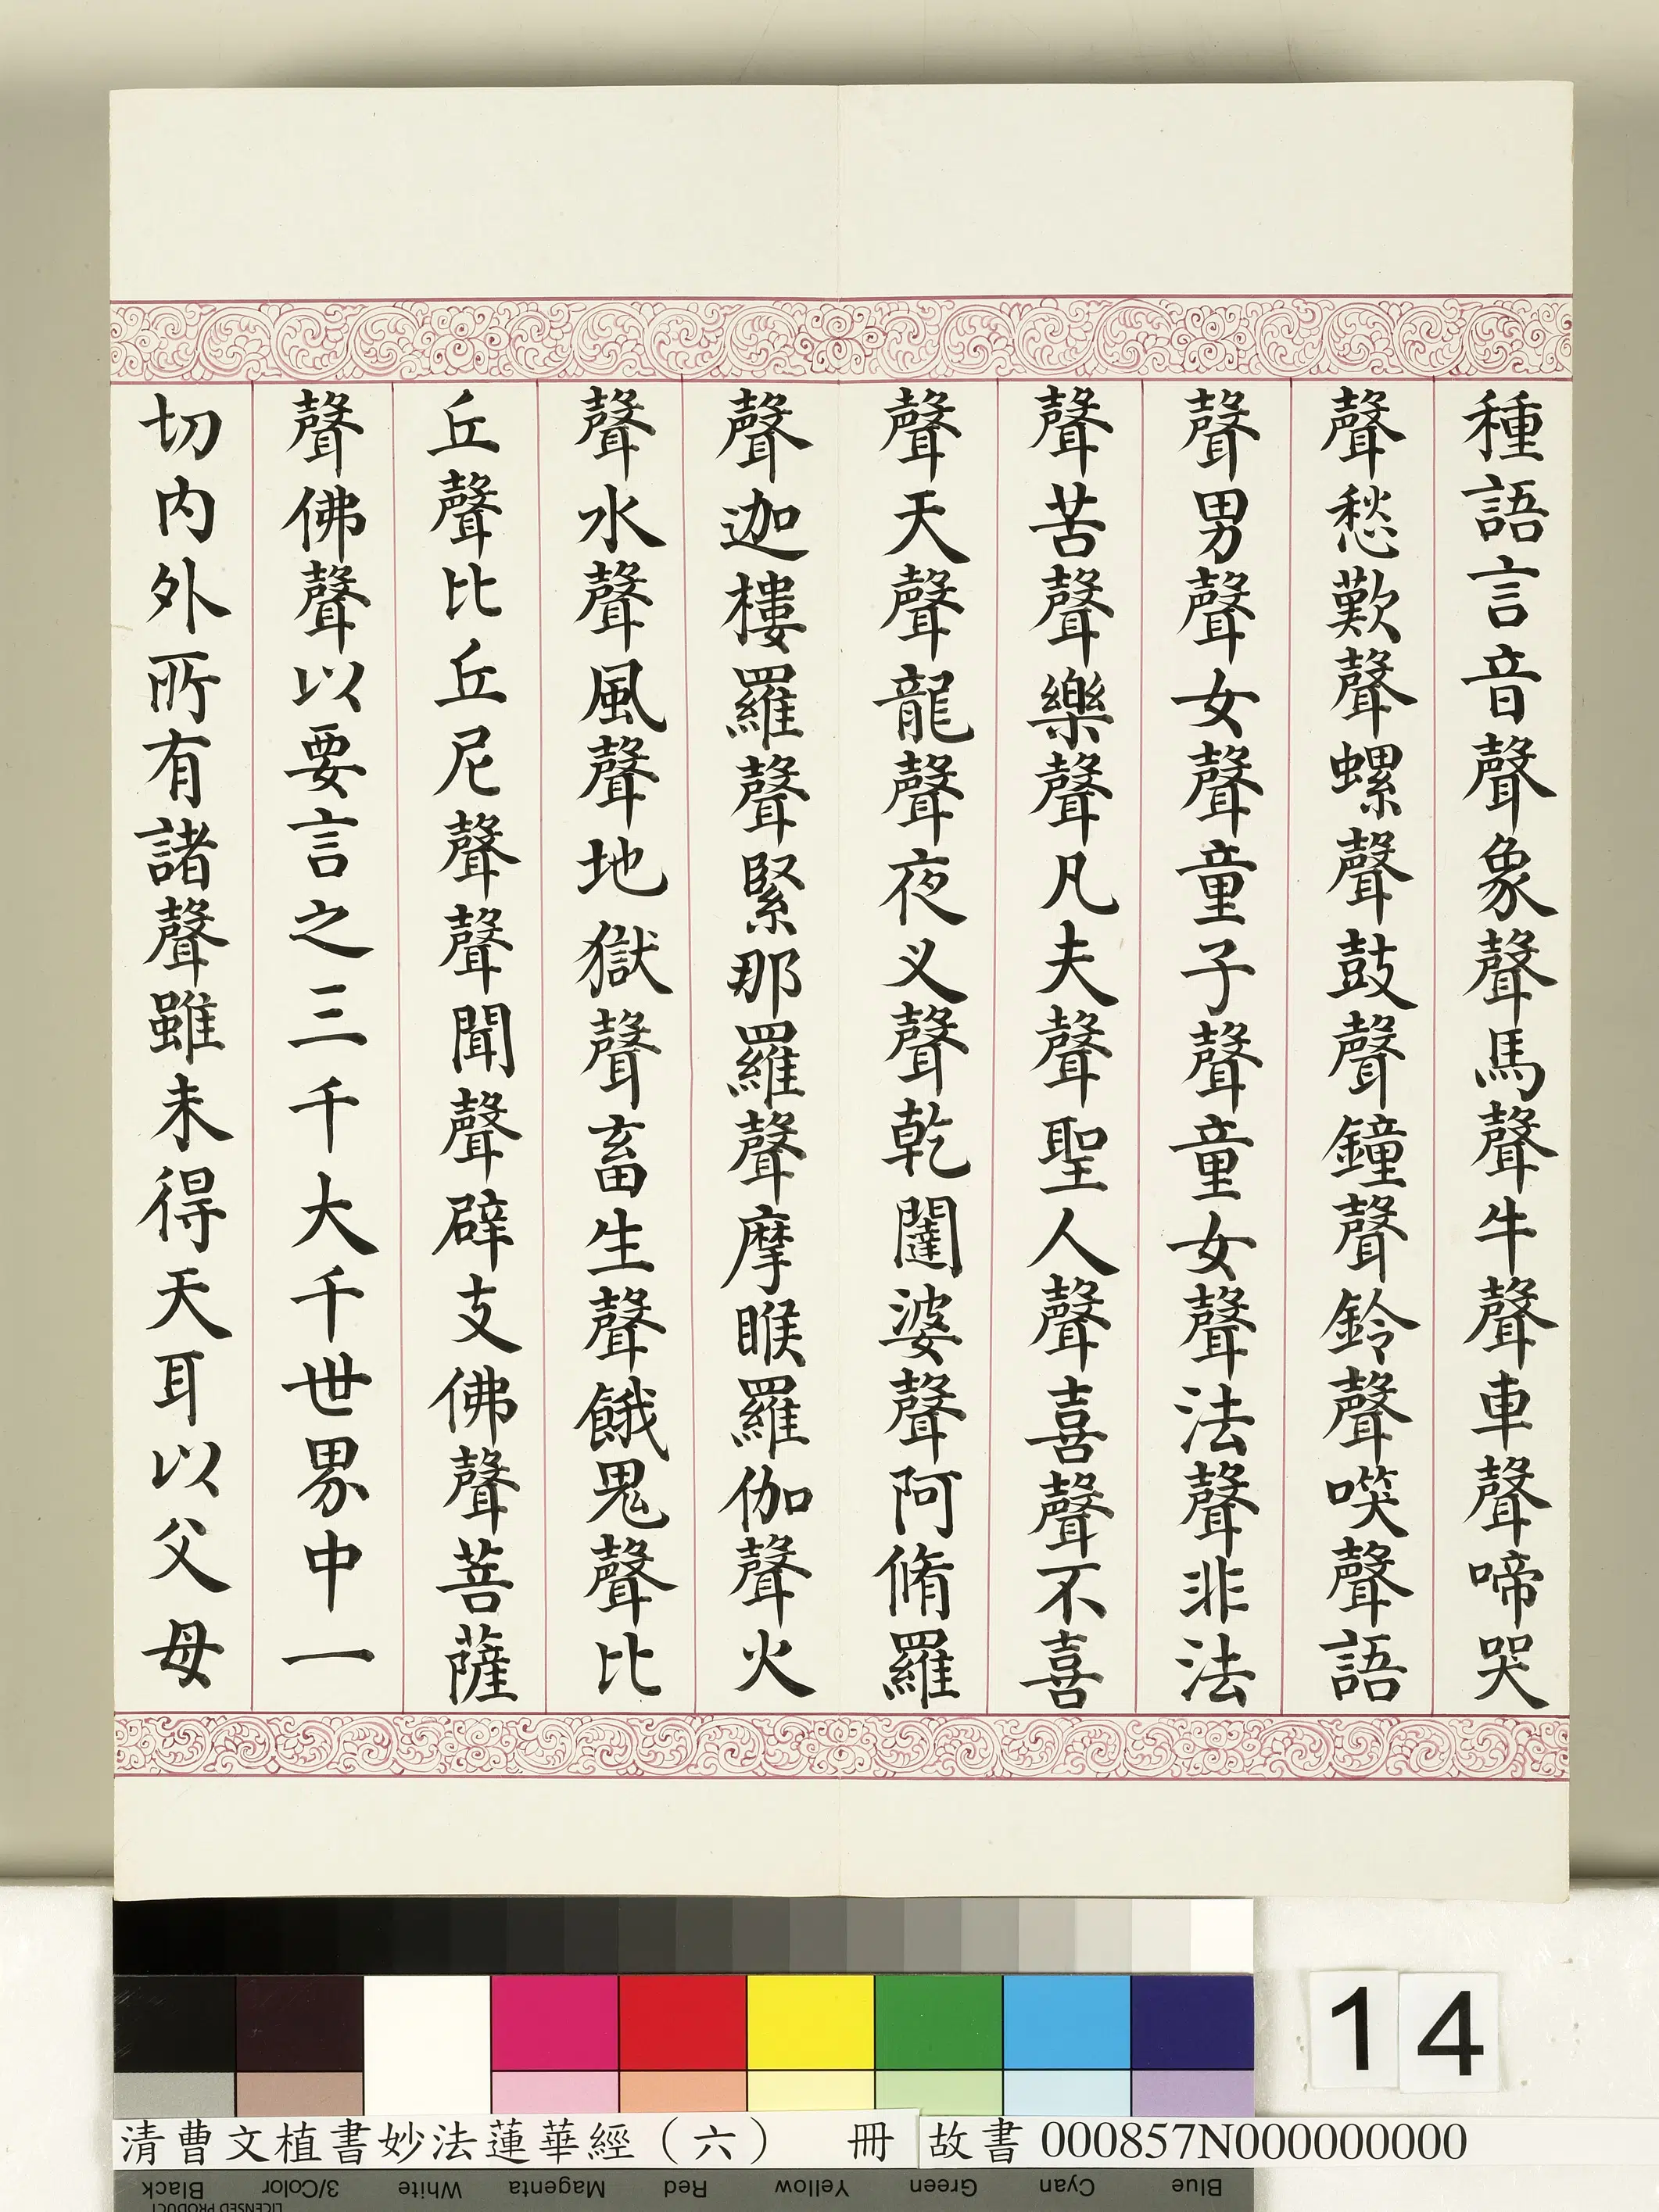 種語言音聲象聲馬聲牛聲車聲啼哭
聲愁歎聲螺聲鼓聲鐘聲鈴聲㗛聲語
聲男聲女聲童子聲童女聲法聲非法
聲苦聲樂聲凡夫聲聖人聲喜聲不喜
聲天聲龍聲夜义聲乾闥婆聲阿脩羅
聲迦樓羅聲緊那羅聲摩睺羅伽聲火
聲水聲風聲地獄聲畜生聲餓鬼聲比
丘聲比丘尼聲聲聞聲辟支佛聲菩薩
聲佛聲以要言之三千大千世界中一
切内外所有諸聲雖未得天耳以父母
14
清曹文植書妙法蓮華經(六) 冊 故書 000857N000000000
Black 3/Color White Magenta Red Yellow Green Cyan Blue
LICENSED PRODUCT